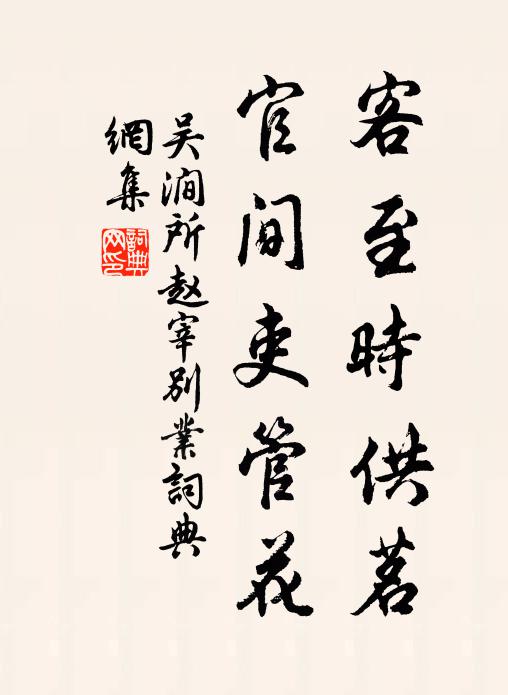 客至時供茗
官间吏管花
吴澗所赵宰别業詞典
網集
詞典
网印